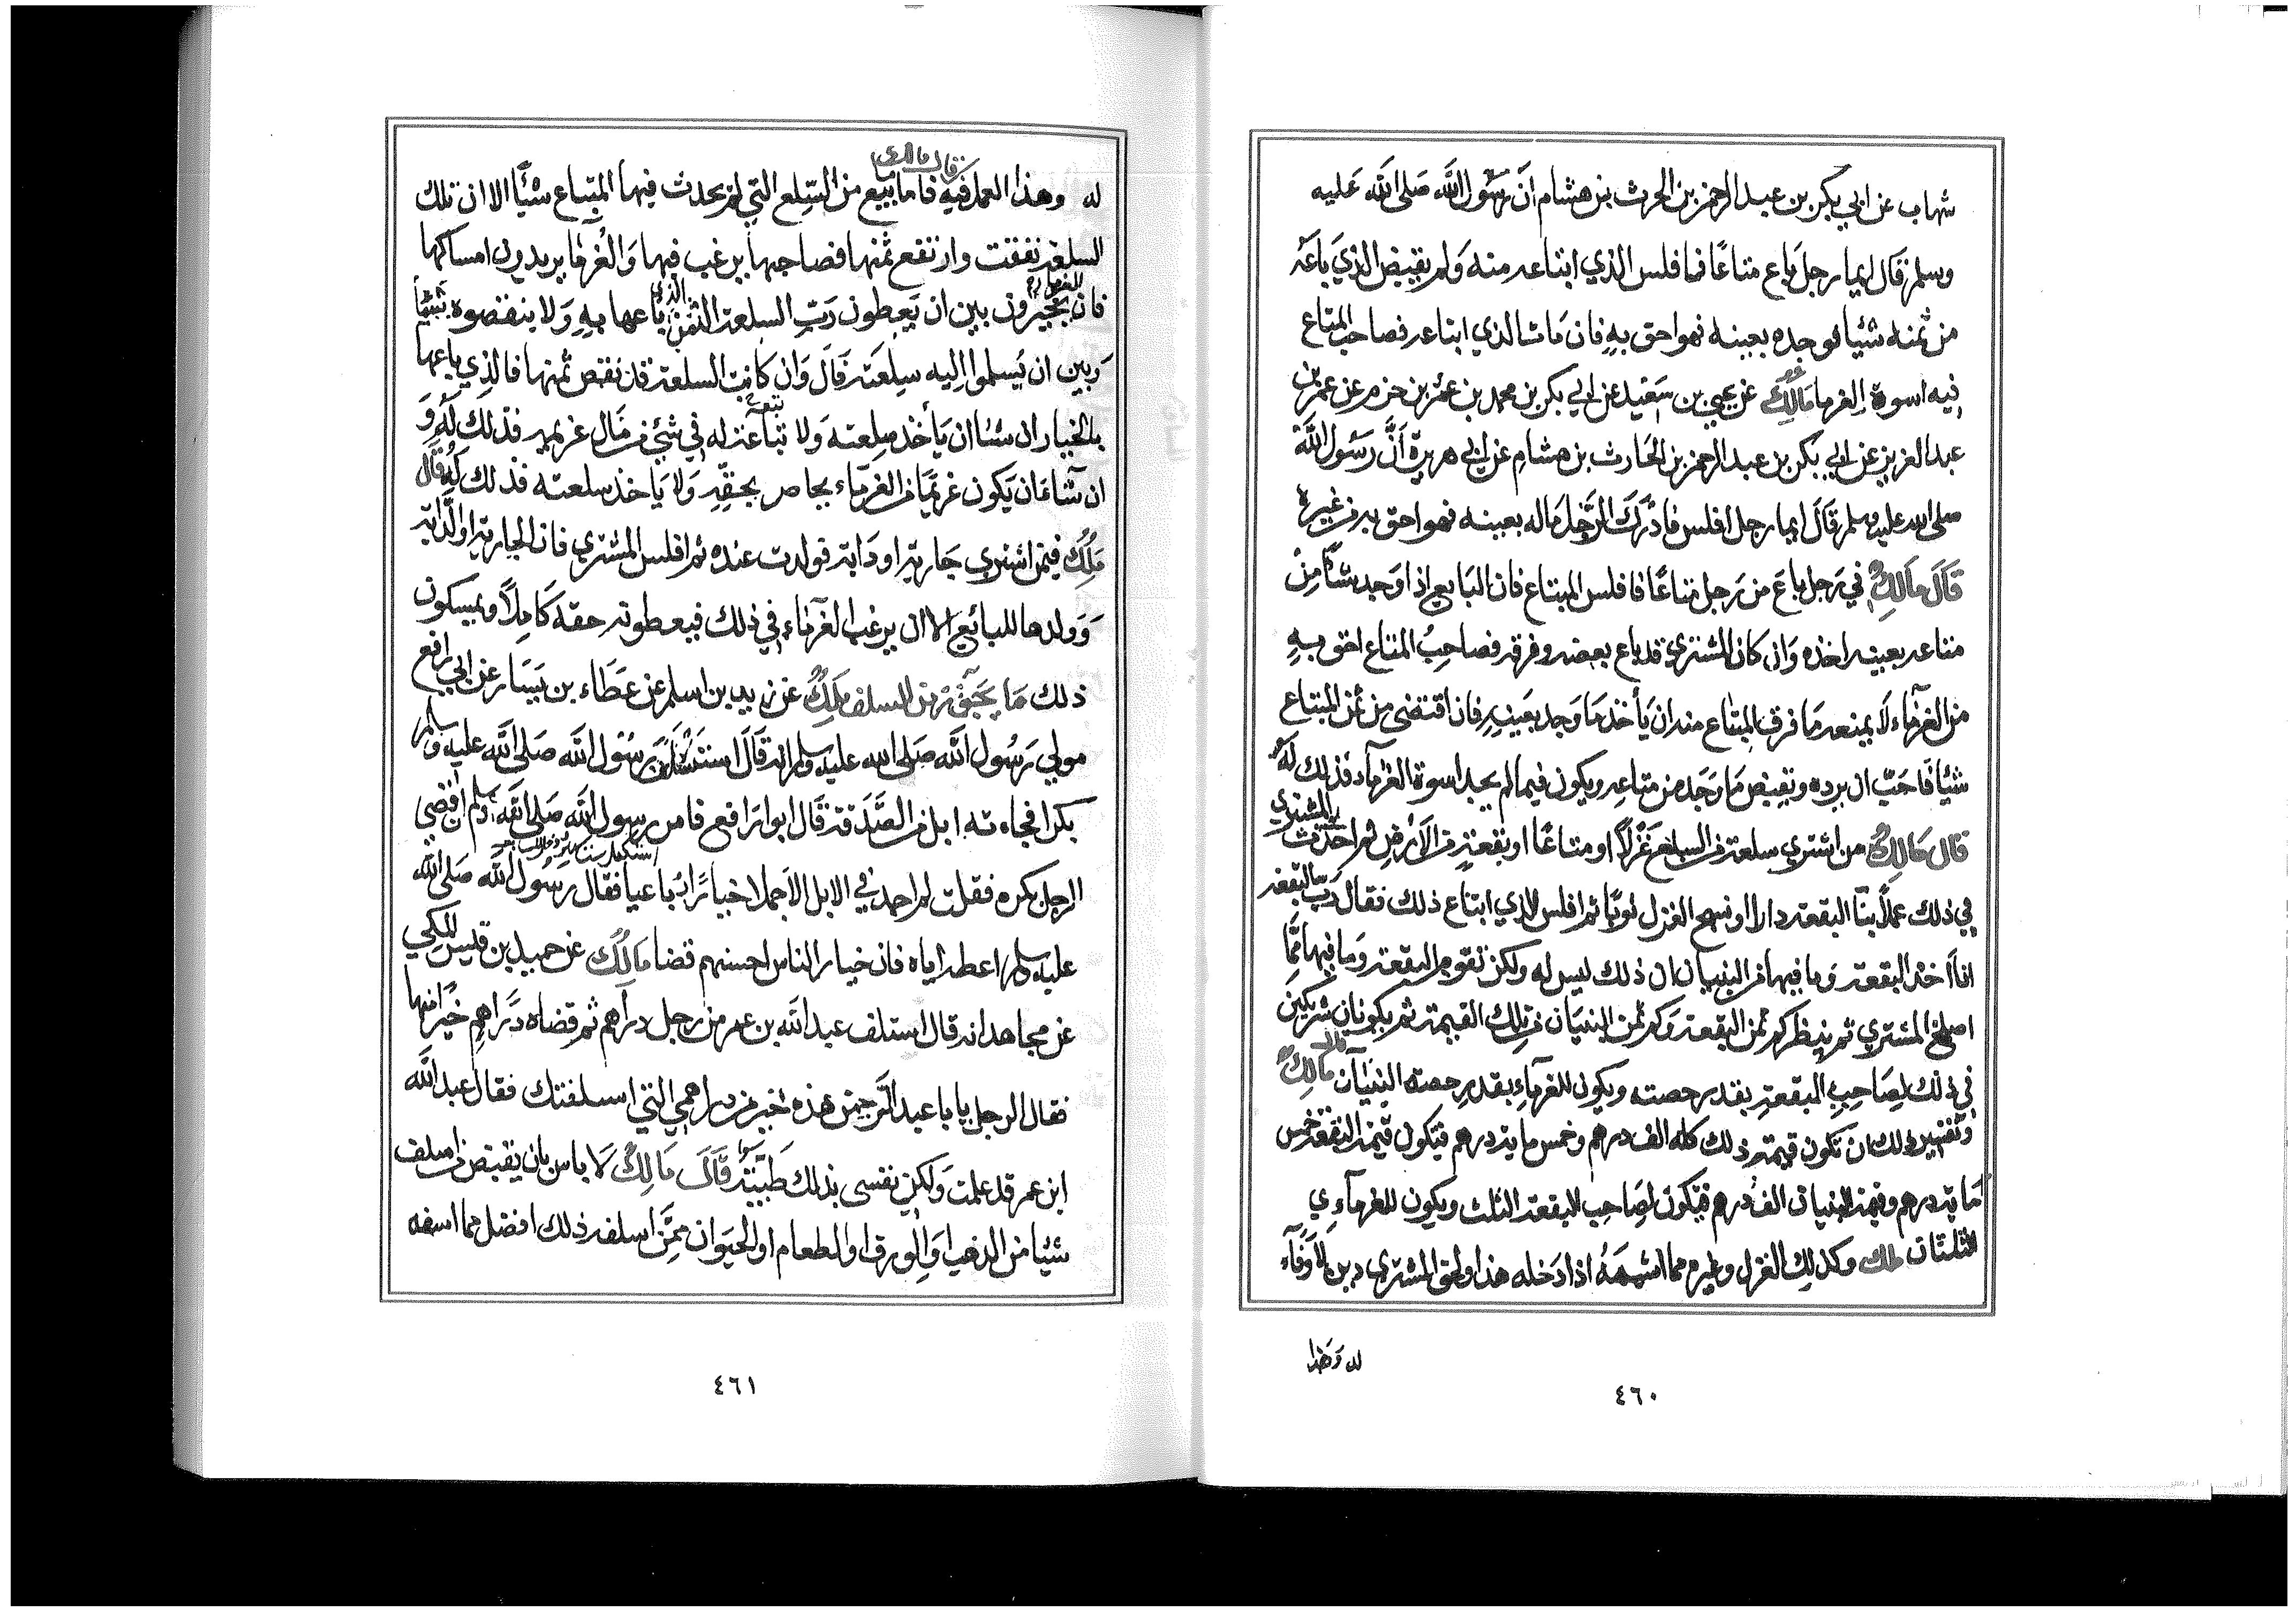 شهاب عن ابي بكر بن عبد الرحمن بن الحرث بن هشام اَنّ رَسُول اللَّه صَلى اللَّه عَليه
وسلم قَال ايما رجل بَاع متاعًا فافلس الذي ابتاعه منه وَلم يقبض الذيَ باعَهُ
من ثمنه شئيا فوجده بعينه فهو احق بهِ فان مَات الذي ابتاعه فصاحب المتاع
فيه اسوة الغرما مَالِكُ عن يحيي بن سَعيد عن ابي بكر بن محمد بن عمر بن حزم عن عمر بن
عبد العزيز عن ابي بكر بن عبد الرحمن بن الحَارث بن هشامِ عن ابي هريرة اَنَّ رَسُول اللَّه
صلى الله عليه وسلم قَالَ ايما رجل افلس فادْرَكَ الرَّجُل مَاله بعينه فهو احق به من غيره
قَالَ مَالِكُ في رَجل باعَ من رَجل متاعًا فافلس المبتاع فان البَايع اذا وَجد شَيًا مِنْ
متاعه بعينه اخذه وَان كان المشتري قد باع بعضه وفرقه فصاحِبُ المتاع احق بهِ
من الغرمَاء لَا يمنعه مَا فرق المبتاع منه ان يَأخذ مَا وَجد بعينهِ فان اقتضى من ثمن المبتاع
شئيا فَاحَبّ ان يرده وَيقبض مَا وَجَد من متاعهِ ويكون فيما لم يجد اسوة الغرمآء فذلك لهُ
قال مَالِكُ من اشتري سلعة من السلع غَزْلًا او متاعًا او بقعة من الاَرْضِ ثم احدَث المشتري
في ذلك عملًا بنَا البقعة دارا او نسج الغزل ثوبًا ثم افلس الذي ابتاع ذلك فقال رَبّ البقعة
انا اخذ البقعة وَما فيها من البنيان ان ذلك ليس له ولكن تقوم البقعة وَما فيها مِمَّا
اصلح المشتري ثم ينظر كم ثمن البقعة وَكم ثمن البنيَان من تلك القيمة ثم يكونان شريكين
في ذلك لِصَاحِبِ البقعةِ بقدر حصته ويكون للغرمآءِ بقدر حصة البنيَانِ قال مَالِكُ
وَتفسير ذلك ان تكون قيمة ذلك كله الف درهم وخمس ماية درهم فتكون قيمة البقعة خمس
مَاية درهم وقيمة البنيان الف درهم فتكون لصَاحِب البقعة الثلث ويكون للغرمآءِ
الثلثان ملك وكذلك الغزل وغيره مما اشبههُ اذا دَخله هذا ولحق المشتري دين لاَ وَفآء
له وَهذا
٤٦٠
قال مالك
له وهذا العمل فيه فاما مَا بيع من السِّلع التي لم يحدث فيها المبتاع شَئيًا الا ان تلك
السلعة نفقت وارتفع ثمنها فصاحبها يرغب فيها وَالغُرمَا يريدون امساكها
فان الغرما يخيرون بين ان يَعطون رَبّ السلعة الثمن الذي باعها بهِ وَلا ينقصوه شئيًا
وَبين ان يَسلموا اليه سِلعَته قَالَ وَان كانتِ السلعة قد نقص ثمنها فالذِي باعها
بالخيار ان شا ان يَأخذ سلعته وَلا تباعة له في شئ من مَال غريمه فذلك لهُ وَ
ان شَاءَ ان يَكون غريمًا من الغرمَاء يحاص بحقّهِ وَلا يَاخذ سلعته فذلك لَهُ قَال
مَلِكُ فيمن اشتري جَارية او دَابة فولدت عنده ثم افلس المشتري فان الجارية او الدَّابة
وَوَلدها للبائع الا ان يرغب الغرمَاء في ذلك فيعطونه حقه كَامِلاً ويمسكون
ذلك مَا يَجُوز من السلف مَلِكُ عن زيد بن اسلم عن عَطَاء بن يَسَار عن ابي رَافع
مولي رَسُول اللَّه صَلى الله عليه وسلم انه قَالَ استسلف رسُول اللَّه صَلى اللَّه عليه وسلم
بكرا فجاءته ابل من الصَّدَقة قَال ابو رَافع فامرني رسول اللَّه صَلى اللَّه عليه وسلم ان اقضي
الرجل بكره فقلت لم اجد في الابل الاَ جملا خيارًا رباعيا فقال رَسُول اللَّه صَلى اللَّه
عليه وسلم اعطه اياه فان خيار الناس احسنهم قضا مَالِكُ عن حميد بن قيس المكي
عن مجاهد انه قال استلف عبد اللَّه بن عمر من رجل درَاهم ثم قضَاه دَرَاهم خيرًا منها
فقال الرجل يابا عبد الرَّحمن هذه خير من دراهمي التي اسلفتك فقال عبد اللَّه
ابن عمر قد علمت وَلكن نفسي بذلك طَيّبَة قَالَ مَالِكُ لَا باس بان يقبض من اسلف
شئيا من الذهب اوَ الورق او الطعام او الحيَوان ممَّن اسلفه ذلك افضل مما اسلفه
٤٦١